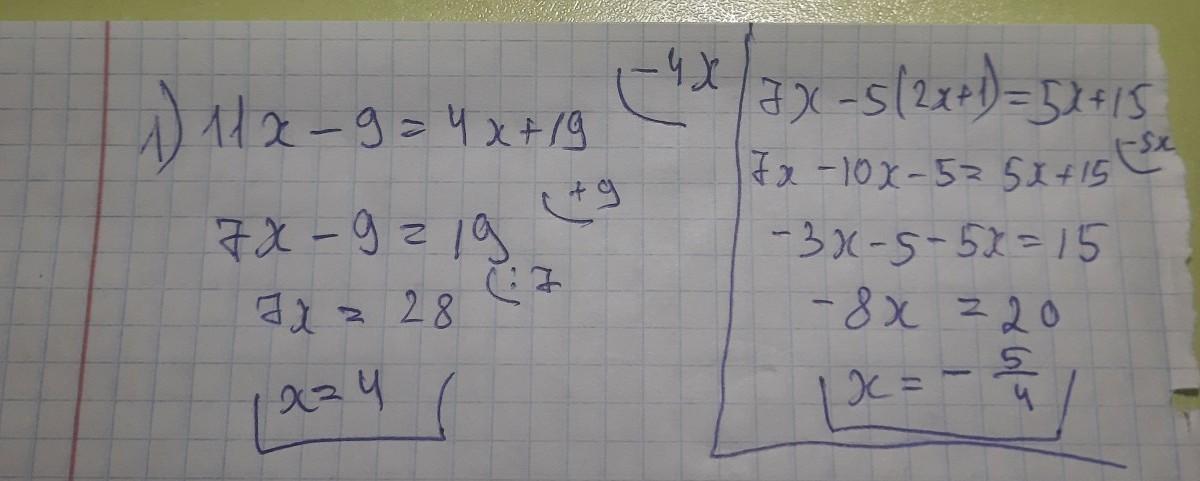 1) 11x - 9 = 4x + 19 | -4x
7x - 9 = 19 | +9
7x = 28 | : 7
x = 4
7x - 5(2x+1) = 5x + 15
7x - 10x - 5 = 5x + 15 | -5x
-3x - 5 - 5x = 15
-8x = 20
x = - 5/4